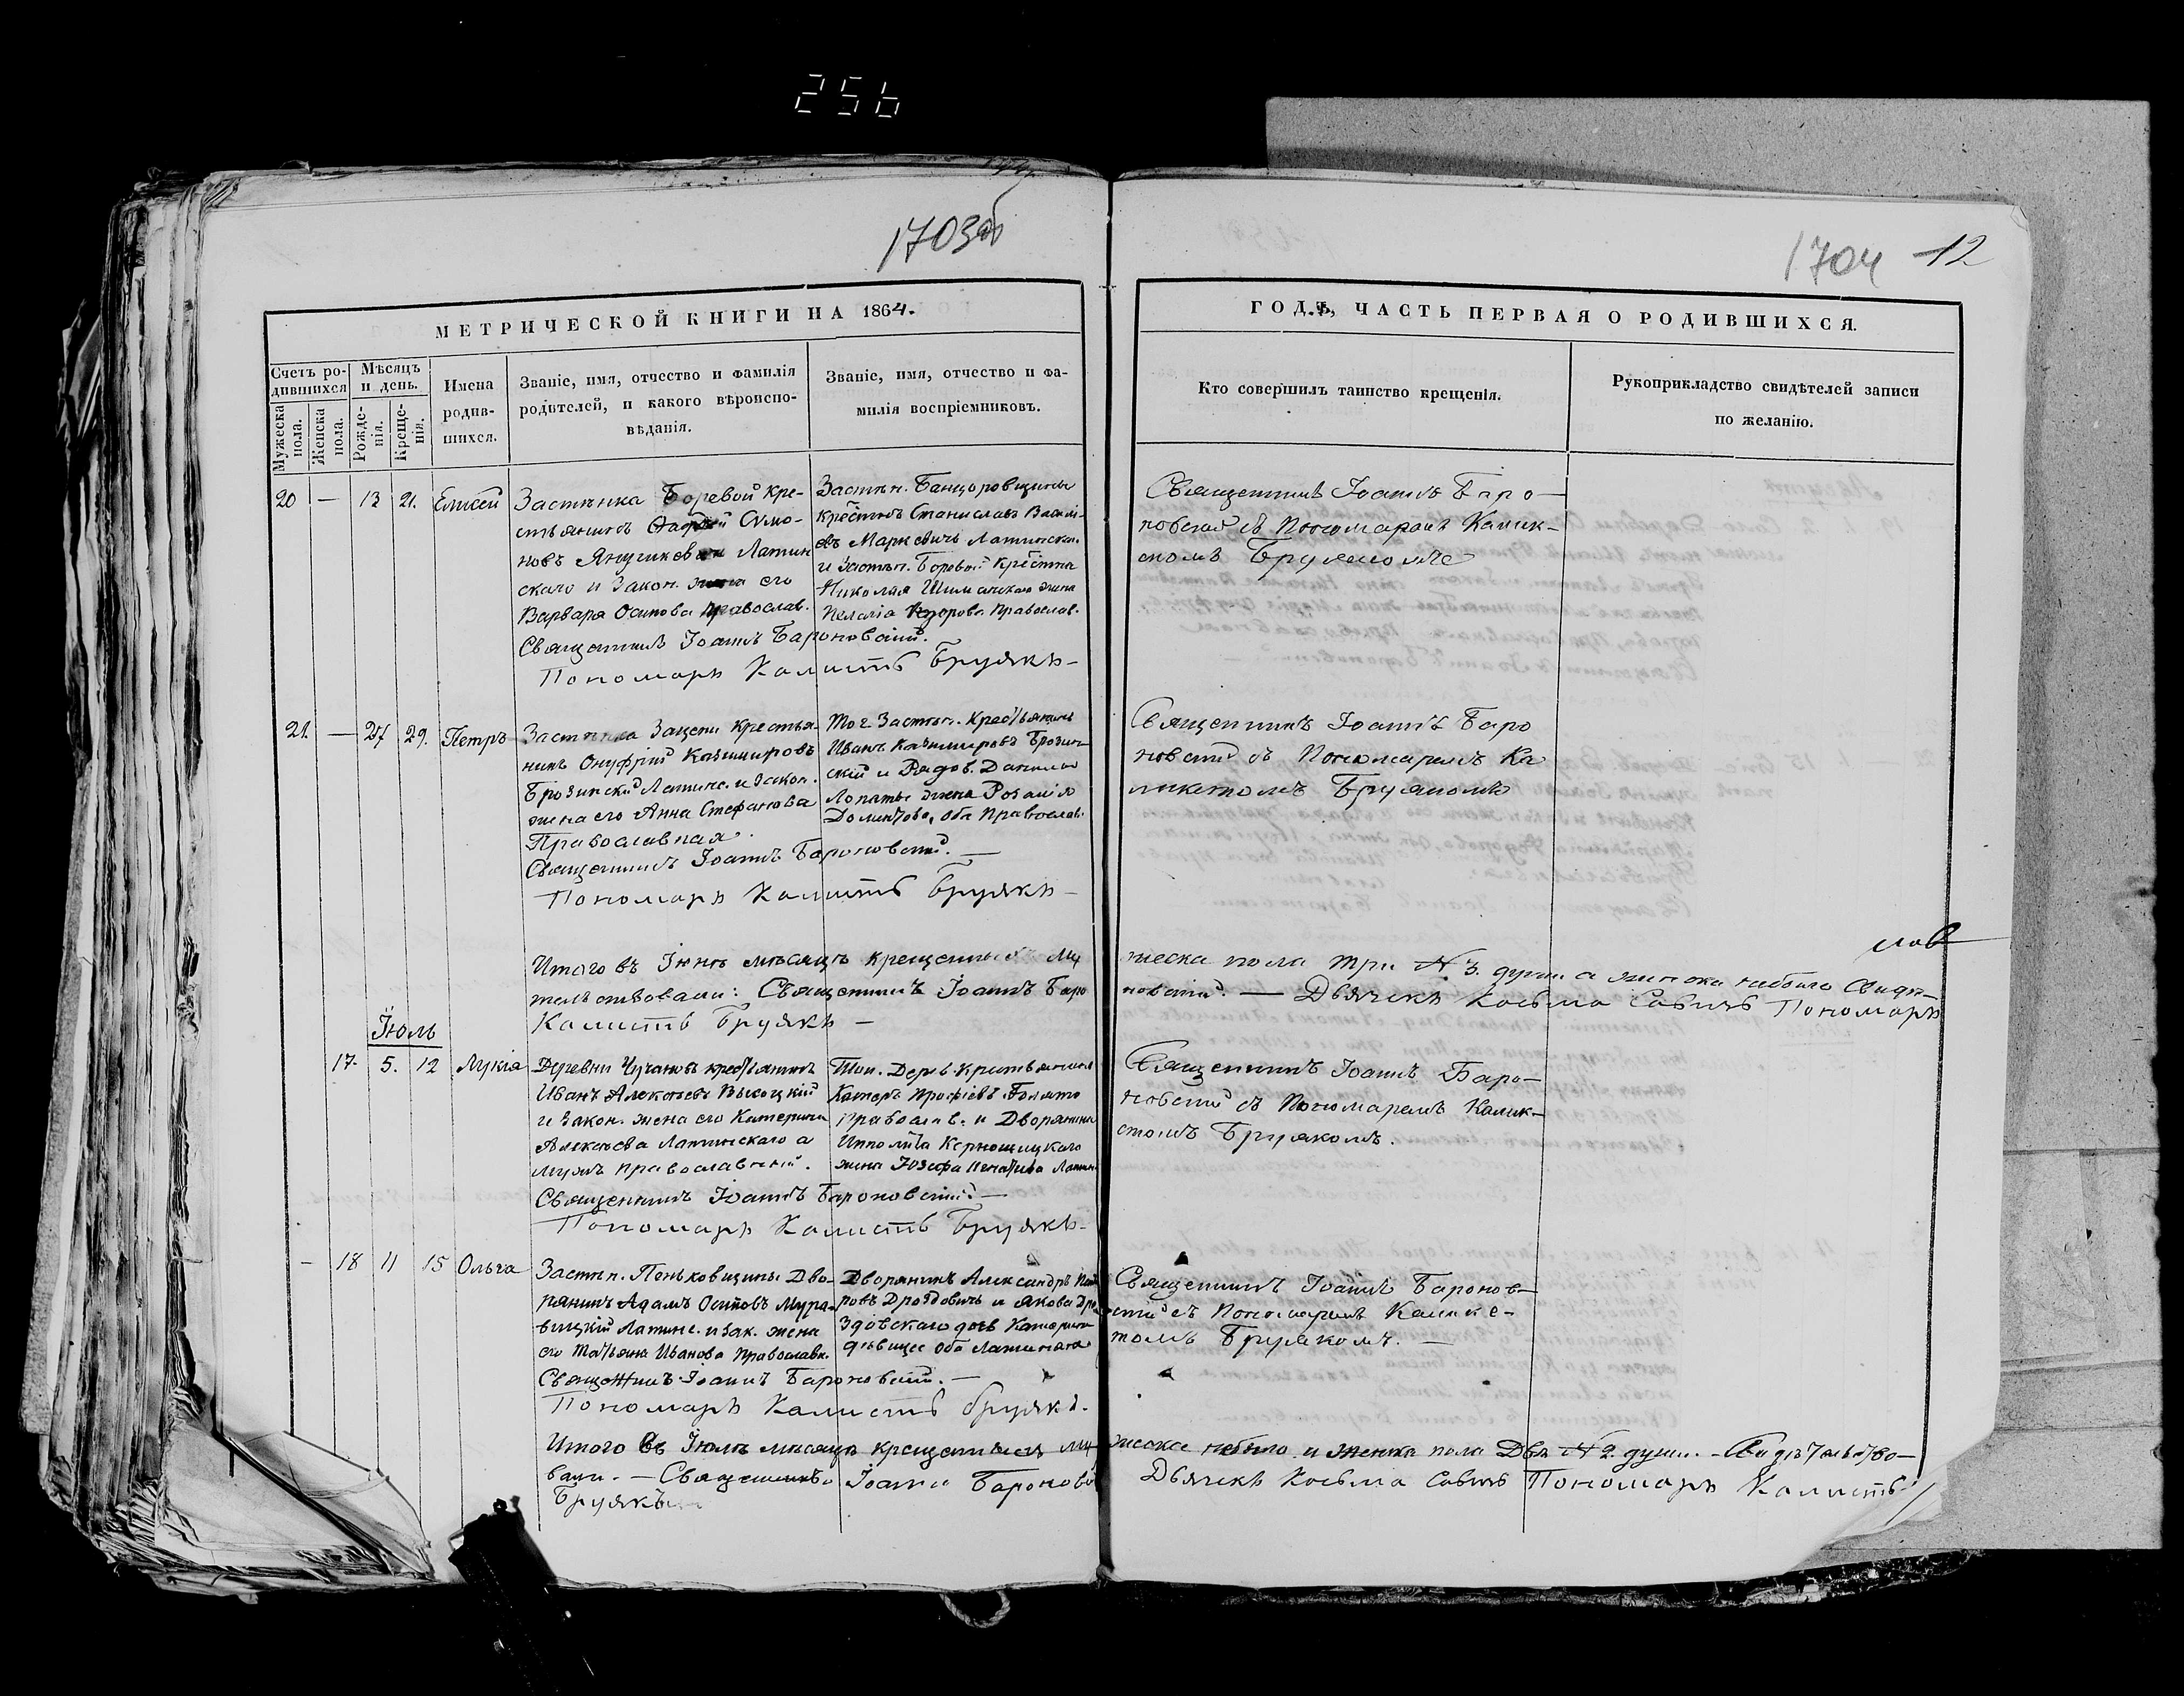 256
1703об
1704 12
МЕТРИЧЕСКОЙ КНИГИ НА 1864.
ГОДЪ, ЧАСТЬ ПЕРВАЯ О РОДИВШИХСЯ.
Счетъ ро-
дившихся
Мужеска
пола.
Женска
пола.
Мѣсяцъ
и день.
Рожде-
нія.
Креще-
нія.
Имена
родив-
шихся.
Званіе, имя, отчество и фамилія
родителей, и какого вѣроиспо-
вѣданія.
Званіе, имя, отчество и фа-
милія воспріемниковъ.
Кто совершилъ таинство крещенія.
Рукоприкладство свидѣтелей записи
по желанію.
20 — 13 21. Елисей
Застѣнка Боревой Кре-
стьянинъ Симо-
новъ Латин
скаго и Закон. жена его
Варвара Осипова православ.
Священникъ Іоаннъ Бароновскій.
Пономарь Калистъ Бруякъ —
Застѣн. Банцоровщины
Крестьян Станиславъ Васил-
евъ Маркевичъ Латинска.
и Застѣн. Боревой Крестьна
Николая жена
Пелагія Православ.
Священникъ Іоаннъ Баро—
новскій съ Пономаремъ Калик-
стомъ Бруякомъ
21. — 27 29. Петръ
Застѣнка Зацепи Крестья-
нинъ Онуфрій Казиміровъ
Брозинскій Латинс. и Закон.
жена его Анна Стефанова
Православная
Священникъ Іоаннъ Бароновскій. —
Пономарь Калистъ Бруякъ —
Того Застѣн. Крестьянинъ
Иванъ Казиміровъ Брозин-
скій и Рядов. Данилы
Лопаты жена Розалія
оба Православ.
Священникъ Іоаннъ Баро
новскій съ Пономаремъ Ка
ликстомъ Бруякомъ
Итого въ Іюнѣ мѣсяцѣ крещенныхъ му
жеска пола три № 3. души а женска небыло Свидѣ-
тельствовали: Священникъ Іоаннъ Баро
новскій. — Дьячекъ Косьма Савичъ Пономарь
Калистъ Бруякъ —
Іюль
17. 5. 12 Лукія
Деревни Чучановъ крестьянинъ
Иванъ Алексѣевъ Высоцкій
и Закон. жена его Катерина
Алексѣева Латинскаго а
мужъ православный.
Священникъ Іоаннъ Бароновскій —
Пономарь Калистъ Бруякъ —
Той. Дерев. Крестьянинъ
православ. и Дворянина
Ипполита
жена Юзефа Игнатьева Латин.
Священникъ Іоаннъ Баро—
новскій съ Пономаремъ Калик-
стомъ Бруякомъ.
— 18 11 15 Ольга
Застѣн. Пеньковщины Дво-
рянинъ Адамъ Осиповъ Мура-
вицкій Латинс. и зак. жена
его Татьяна Иванова Православн.
Священникъ Іоаннъ Бароновскій. —
Пономарь Калистъ Бруякъ.
Дворянинъ Александръ
ровъ Дроздовичъ и Якова Дро
здовскаго дочь Катерина
дѣвица оба Латинска
Священникъ Іоаннъ Баронов—
скій съ Пономаремъ Каликс-
томъ Бруякомъ. —
Итого въ Іюлѣ мѣсяцѣ крещенныхъ му-
жеска небыло и женска пола Двѣ № 2. души. — Свидѣтельство—
вали. — Священникъ Іоаннъ Баронов
Дьячекъ Косьма Савичъ Пономарь Калистъ
Бруякъ